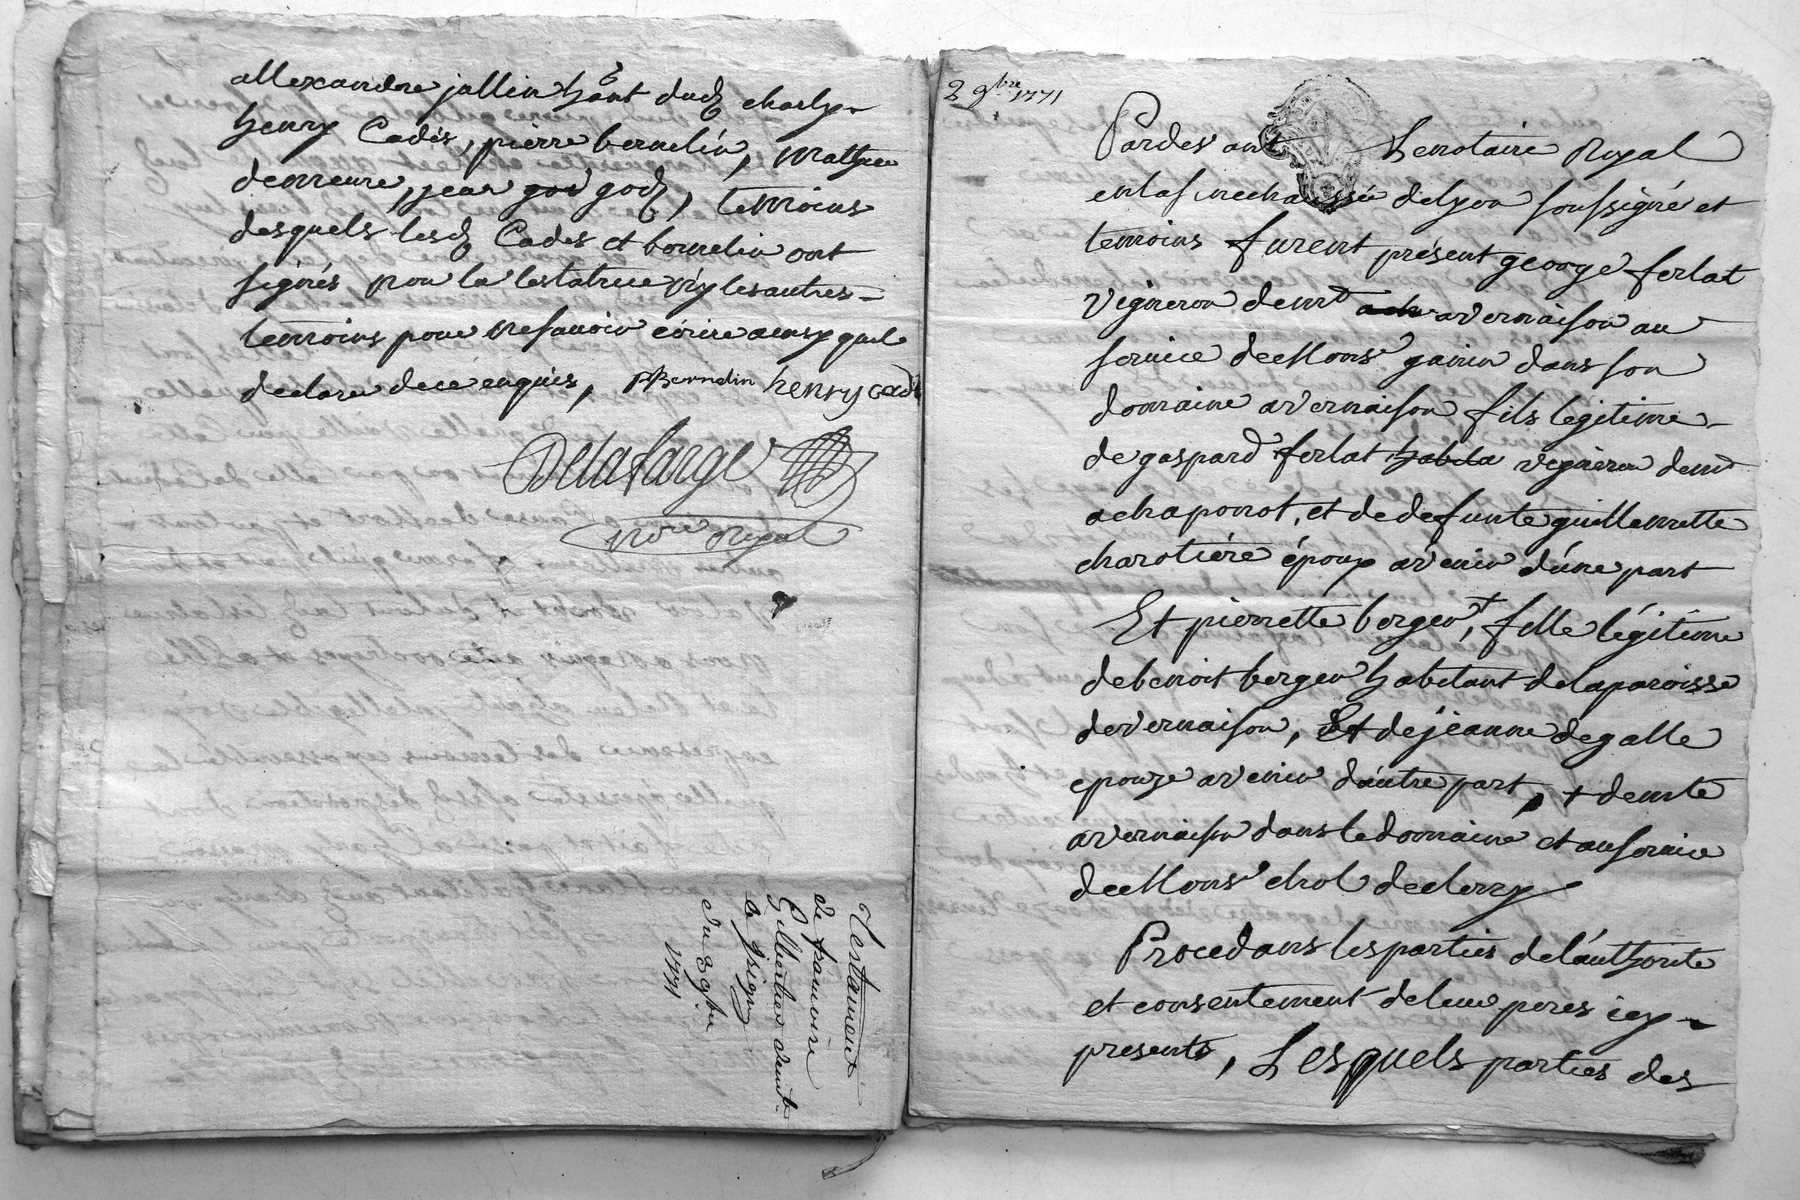 allexandre jallin hant dud charly
henry Cadés, pierre bernelin, mathieu
demeure, jean god, temoins
desquels lesd Cades et bernelin ont
signés non la testatrice ny les autres
temoins pour ne sauoir écrire ainsy quils
declaré de ce enquis, PBernelin henry cadé
Delafarge
nore Royal
Testament
de francoise
Gilbertier demte
a
du 3 9bre
1771
2 9bre 1771
Pardevant Le notaire Royal
en la sinechaussée de lyon soussigné et
temoins furent présent george ferlat
vigneron demt a vernaison au
service de Mons garin dans son
domaine a vernaison fils legitime
de gaspard ferlat habita vigneron demt
a chaponost, et de defunte guillemette
charotiére époux avenir d'une part
Et pierrette berger +, fille légitime
de benoit berger habitant de la paroisse
de vernaison, Et de jeanne degalle
epouze avenir d'autre part, + demte
a vernaison dans le domaine et au service
de Mons chol de clercy
Procedans les parties de l'authorité
et consentement de leur peres icy
presents, Lesquels parties des